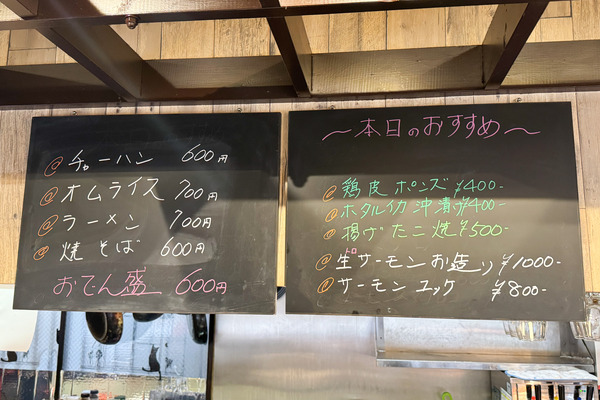 チャーハン 600円
オムライス 700円
ラーメン 700円
焼そば 600円
おでん盛 600円
〜本日のおすすめ〜
鶏皮ポンズ ¥400-
ホタルイカ沖漬 ¥400-
揚げたこ焼 ¥500-
生サーモンお造り ¥1000-
サーモンユッケ ¥800-